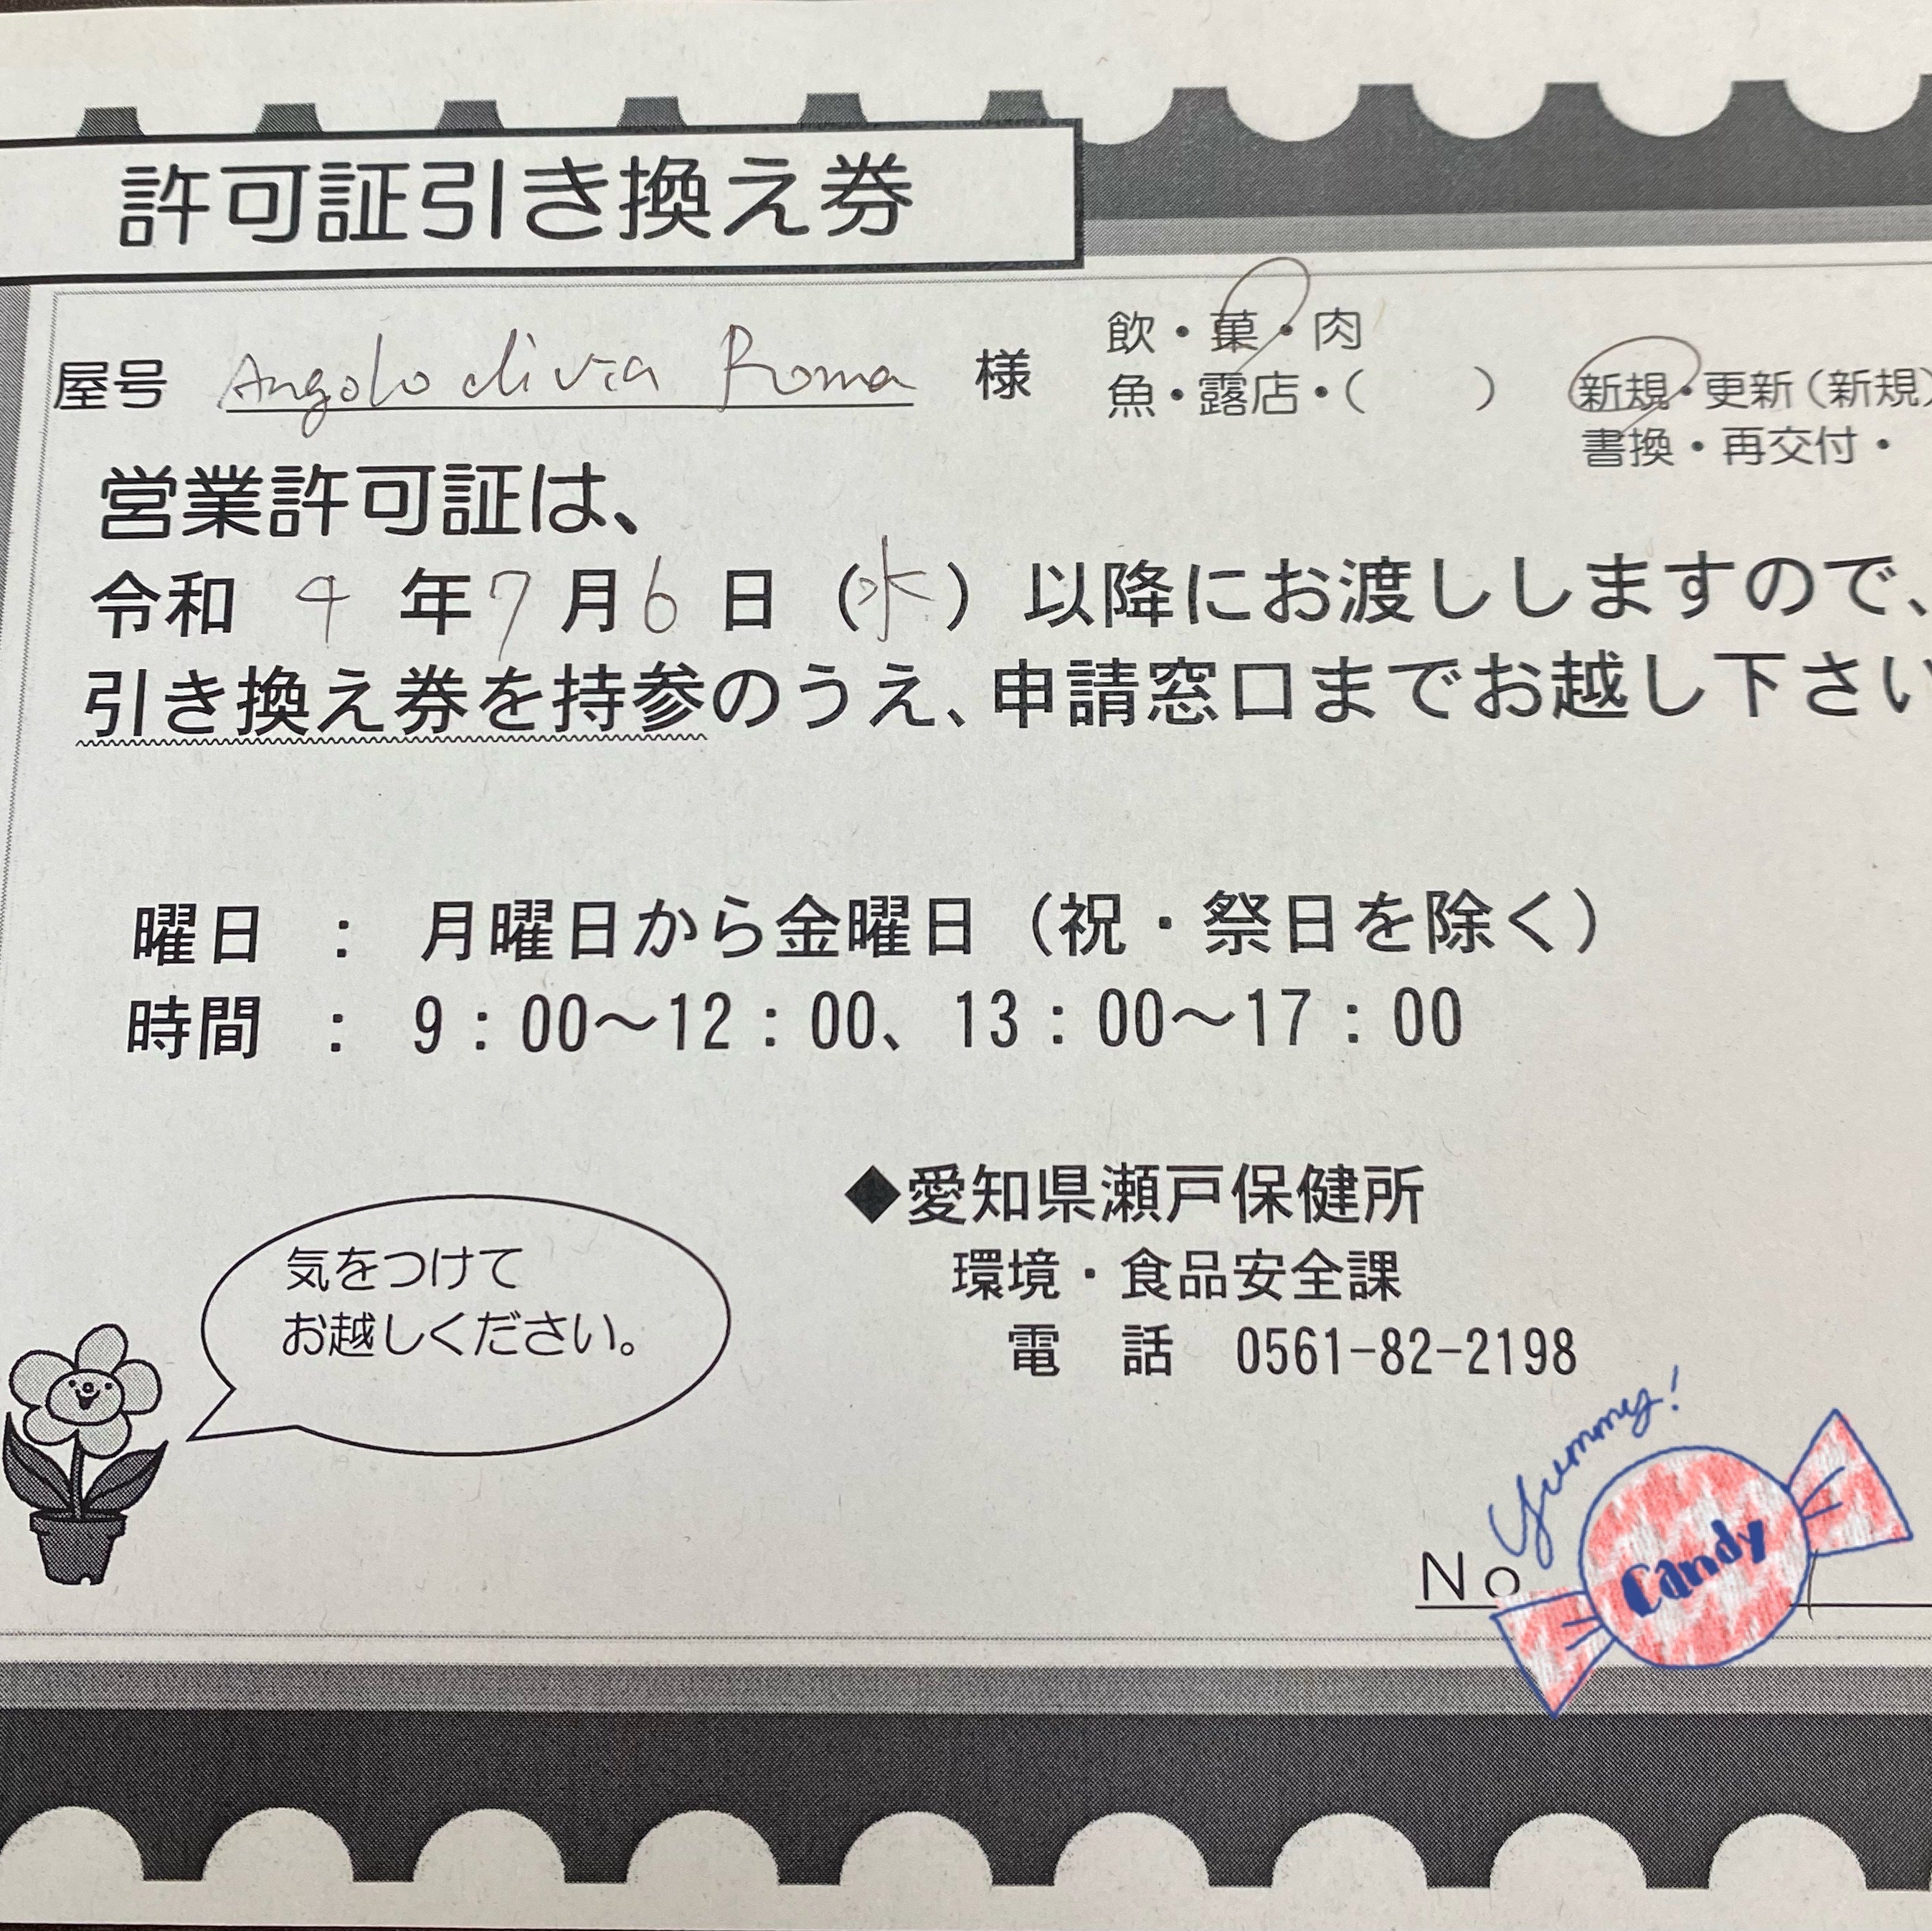 許可証引き換え券
屋号 Angolo di via Roma 様
飲・菓・肉
魚・露店・(　　)
新規・更新(新規)
書換・再交付・
営業許可証は、
令和 4 年 7 月 6 日 (水) 以降にお渡ししますので、
引き換え券を持参のうえ、申請窓口までお越し下さい
曜日 : 月曜日から金曜日(祝・祭日を除く)
時間 : 9:00～12:00、13:00～17:00
◆愛知県瀬戸保健所
環境・食品安全課
電 話 0561-82-2198
気をつけて
お越しください。
Yummy!
Candy
No